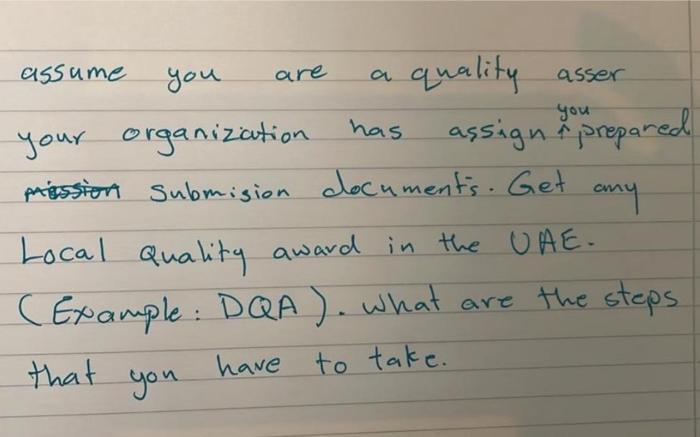 assume you are a quality asser
your organization has assign you prepared
mission submision documents. Get any
Local Quality award in the UAE.
(Example: DQA). What are the steps
that you have to take.